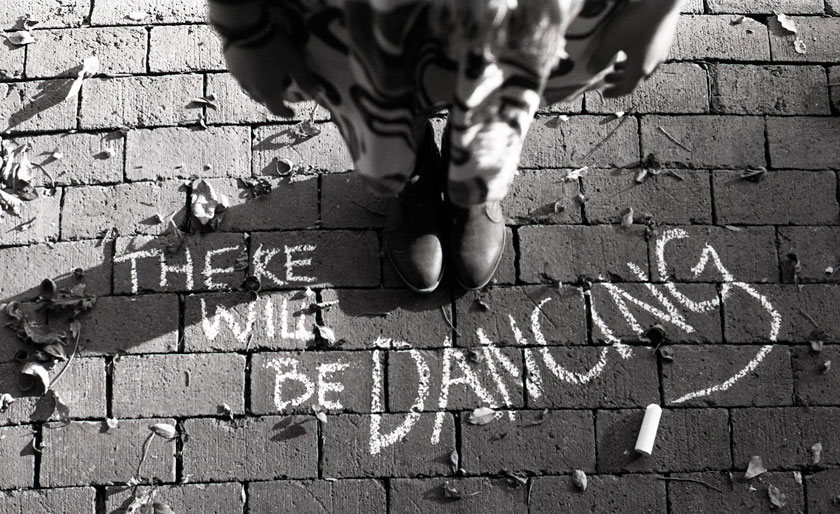 THERE
WILL
BE DANCING